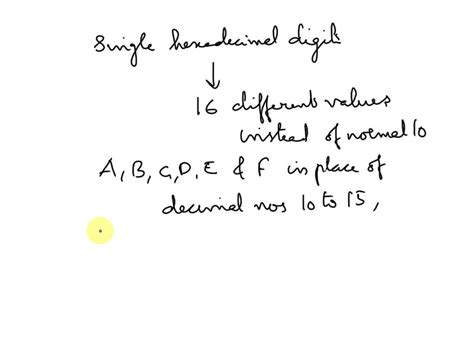 Single hexadecimal digit
↓
16 different values
instead of normal 10
A, B, C, D, E & F in place of
decimal nos 10 to 15,